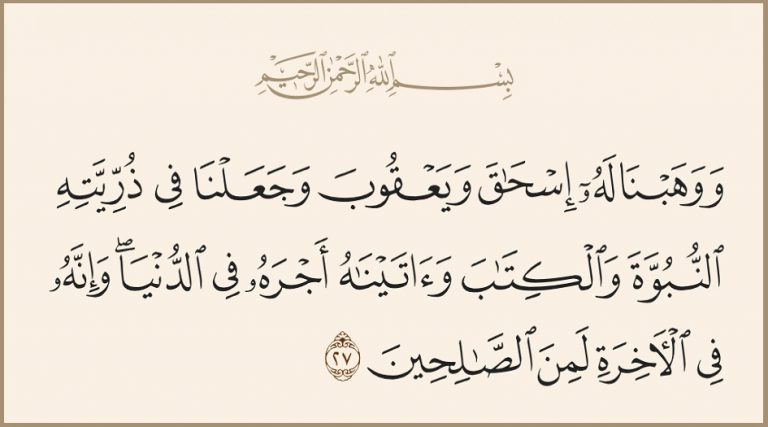 بِسْمِ ٱللَّهِ ٱلرَّحْمَٰنِ ٱلرَّحِيمِ
وَوَهَبْنَا لَهُۥٓ إِسْحَٰقَ وَيَعْقُوبَ وَجَعَلْنَا فِى ذُرِّيَّتِهِ
ٱلنُّبُوَّةَ وَٱلْكِتَٰبَ وَءَاتَيْنَٰهُ أَجْرَهُۥ فِى ٱلدُّنْيَا ۖ وَإِنَّهُۥ
فِى ٱلْءَاخِرَةِ لَمِنَ ٱلصَّٰلِحِينَ ٢٧